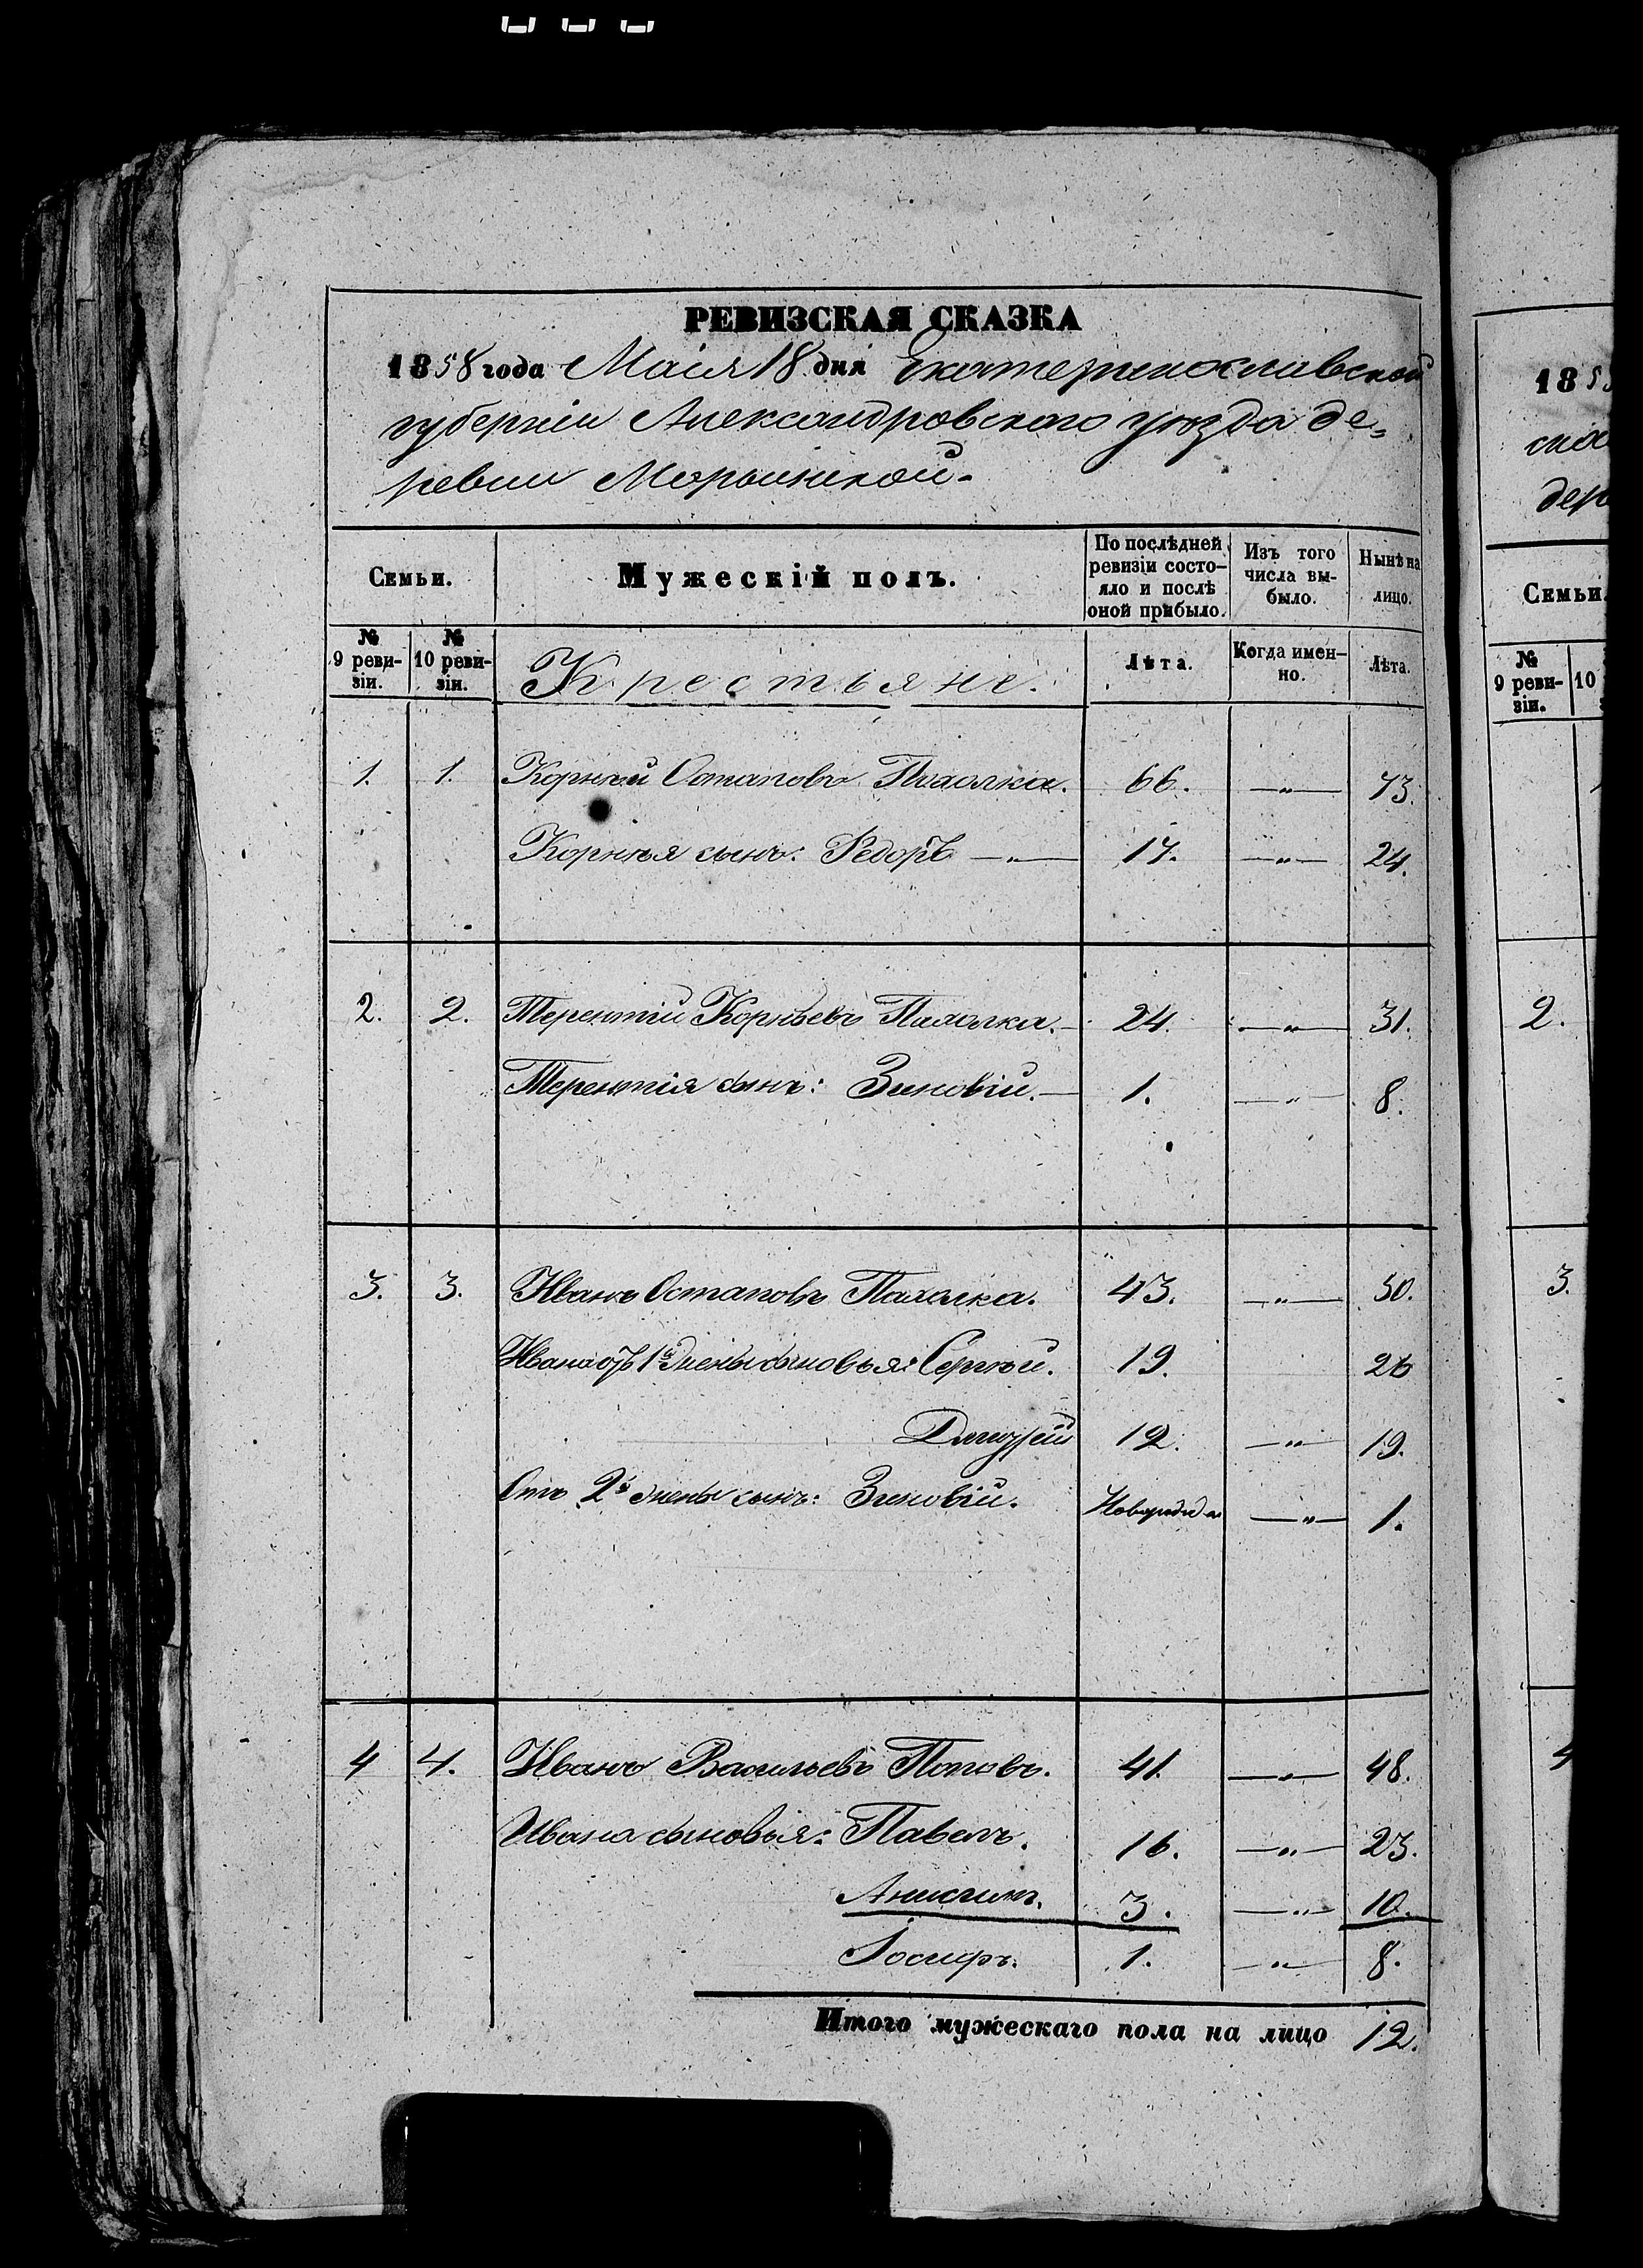 РЕВИЗСКАЯ СКАЗКА
1858 года Маія 18 дня Екатеринославской
губерніи Александровскаго уѣзда де=
ревни
Семьи. Мужескій полъ. По послѣдней ревизіи состо- яло и послѣ оной прибыло. Изъ того числа вы- было. Нынѣ на лицо.
№ 9 реви- зіи. № 10 реви- зіи. Крестьяне. Лѣта. Когда имен- но. Лѣта.
1. 1. Корнѣй Остаповъ Пахалка. 66. —„— 73.
Корнѣя сынъ: Федоръ —„— 17. —„— 24.
2. 2. Терентій Корнѣевъ Пахалка. 24. —„— 31.
Терентія сынъ: Зиновій. 1. —„— 8.
3. 3. Иванъ Остаповъ Пахалка. 43. —„— 50.
Ивана отъ 1й жены сыновья: Сергѣй. 19. 26
Дмитрій 12. —„— 19.
Отъ 2й жены сынъ: Зиновій. —„— 1.
4 4. Иванъ Васильевъ Поповъ. 41. —„— 48.
Ивана сыновья: Павелъ. 16. —„— 23.
Анисимъ. 3. —„— 10.
Іосифъ. 1. —„— 8.
Итого мужескаго пола на лицо 12.
185
дер
Семьи.
№ 9 реви- зіи. 10
2.
3.
4